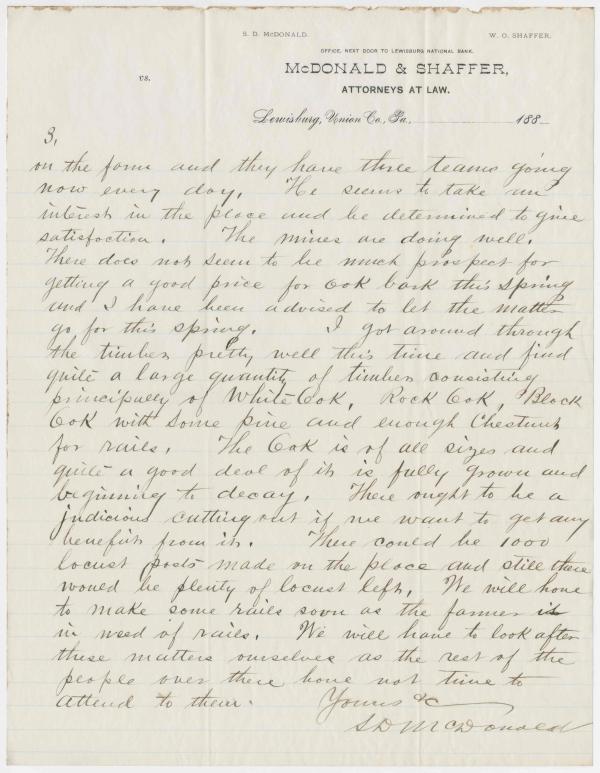 S. D. McDONALD. W. O. SHAFFER.
OFFICE, NEXT DOOR TO LEWISBURG NATIONAL BANK.
McDONALD & SHAFFER,
vs.
ATTORNEYS AT LAW.
Lewisburg, Union Co., Pa., 188
3,
on the farm and they have three teams going
now every day. He seems to take an
interest in the place and be determined to give
satisfaction. The mines are doing well.
There does not seem to be much prospect for
getting a good price for Oak bark this spring
and I have been advised to let the matter
go for this spring. I got around through
the timber pretty well this time and find
quite a large quantity of timber consisting
principally of White Oak, Rock Oak, Black
Oak with some pine and enough Chestnut
for rails. The Oak is of all sizes and
quite a good deal of it is fully grown and
beginning to decay. There ought to be a
judicious cutting out if we want to get any
benefit from it. There could be 1000
locust posts made on the place and still there
would be plenty of locust left. We will have
to make some rails soon as the farmer is
in need of rails. We will have to look after
these matters ourselves as the rest of the
people over there have not time to
attend to them. Yours &c
S D McDonald